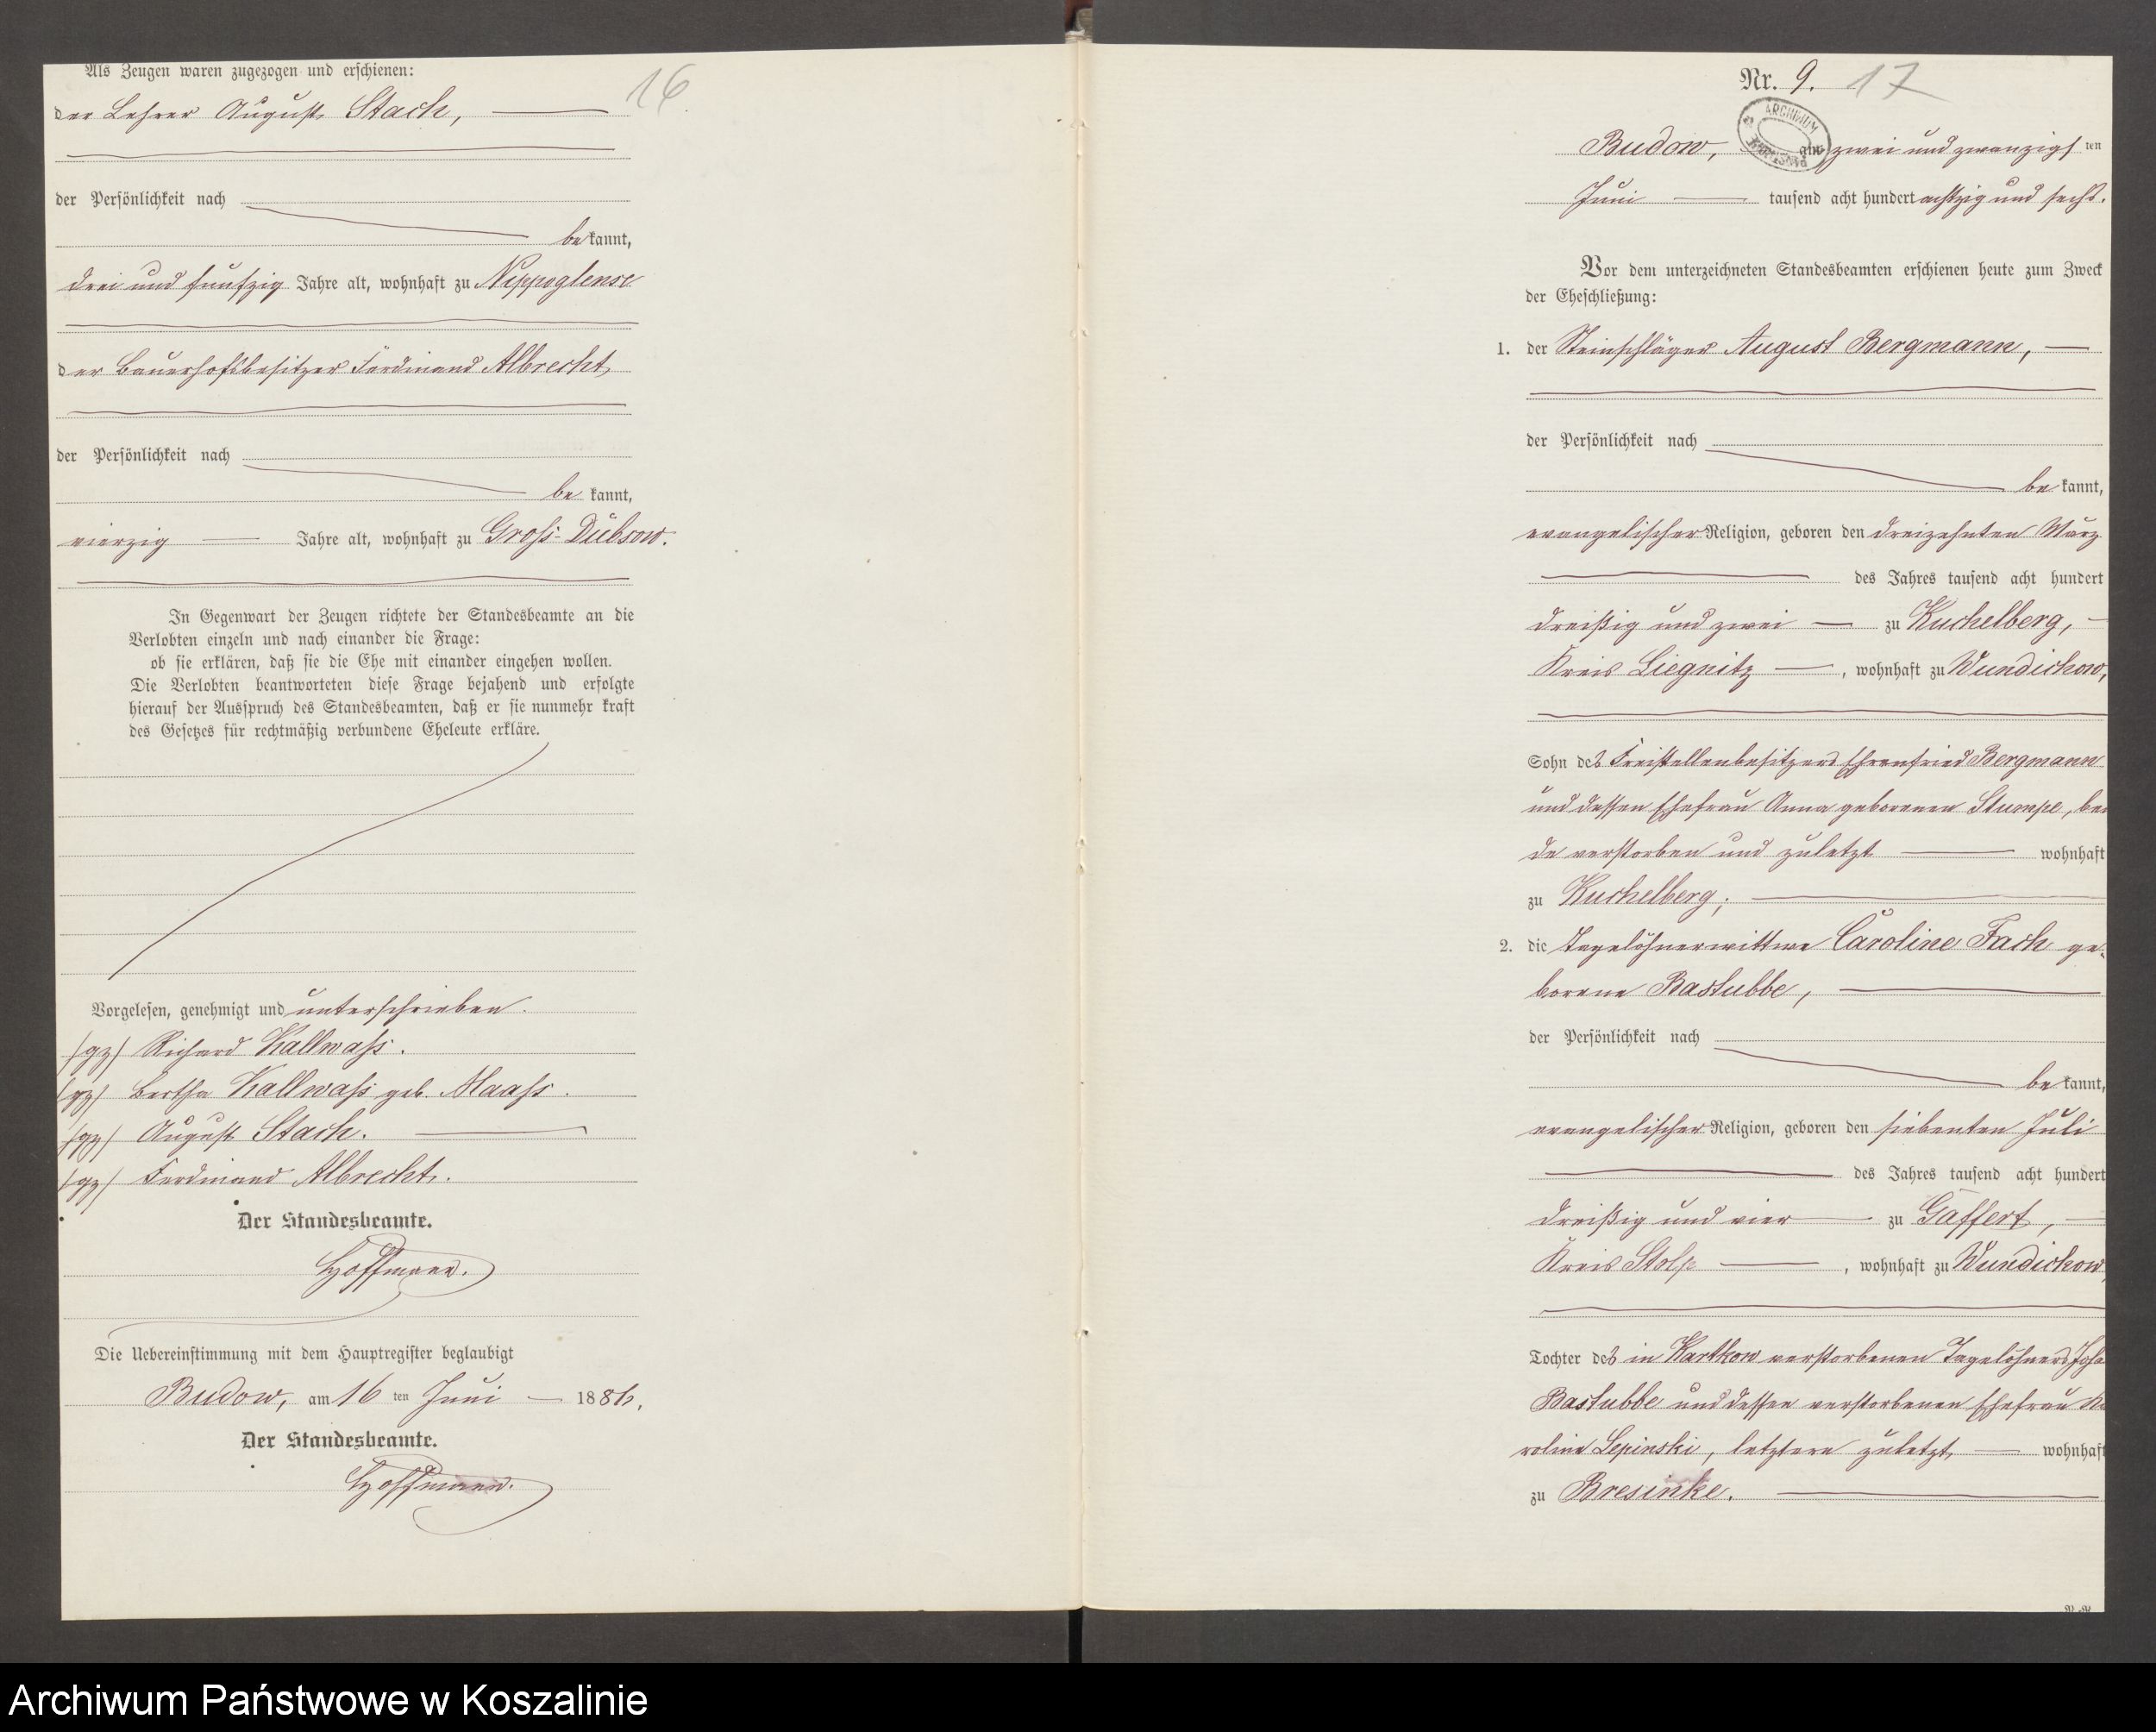 Als Zeugen waren zugezogen und erschienen:
16
der Lehrer August Stach,
der Persönlichkeit nach
bekannt,
drei und fünfzig Jahre alt, wohnhaft zu Nippoglense
der Bauerhofsbesitzer Ferdinand Albrecht
der Persönlichkeit nach
be kannt,
vierzig Jahre alt, wohnhaft zu Groß-Dübsow.
In Gegenwart der Zeugen richtete der Standesbeamte an die
Verlobten einzeln und nach einander die Frage:
ob sie erklären, daß sie die Ehe mit einander eingehen wollen.
Die Verlobten beantworteten diese Frage bejahend und erfolgte
hierauf der Ausspruch des Standesbeamten, daß er sie nunmehr kraft
des Gesetzes für rechtmäßig verbundene Eheleute erkläre.
Vorgelesen, genehmigt und unterschrieben.
/gz/ Richard Kallwaß.
/gz/ Bertha Kallwaß geb. Maaß.
/gz/ August Stach.
/gz/ Ferdinand Albrecht.
Der Standesbeamte.
Hoffmann.
Die Uebereinstimmung mit dem Hauptregister beglaubigt
Budow, am 16 ten Juni 1886.
Der Standesbeamte.
Hoffmann.
Nr. 9. 17
ARCHIWUM
Budow, am zwei und zwanzigsten
Juni tausend acht hundert achtzig und sechs.
Vor dem unterzeichneten Standesbeamten erschienen heute zum Zweck
der Eheschließung:
1. der Steinschläger August Bergmann,
der Persönlichkeit nach
be kannt,
evangelischer Religion, geboren den dreizehnten März
des Jahres tausend acht hundert
dreißig und zwei zu Kuchelberg,
Kreis Liegnitz, wohnhaft zu Wundichow,
Sohn des Freistellenbesitzers Ehrenfried Bergmann
und dessen Ehefrau Anna geborenen Stumpe, bei
de verstorben und zuletzt wohnhaft
zu Kuchelberg;
2. die Tagelöhnerwittwe Caroline Fach ge-
borene Bastubbe,
der Persönlichkeit nach
be kannt,
evangelischer Religion, geboren den siebenten Juli
des Jahres tausend acht hundert
dreißig und vier zu Gaffert,
Kreis Stolp, wohnhaft zu Wundichow,
Tochter des in Kartkow verstorbenen Tagelöhners Joha
Bastubbe und dessen verstorbenen Ehefrau Ka
roline Lepinski, letztere zuletzt wohnhaft
zu Bresinke.
Archiwum Państwowe w Koszalinie